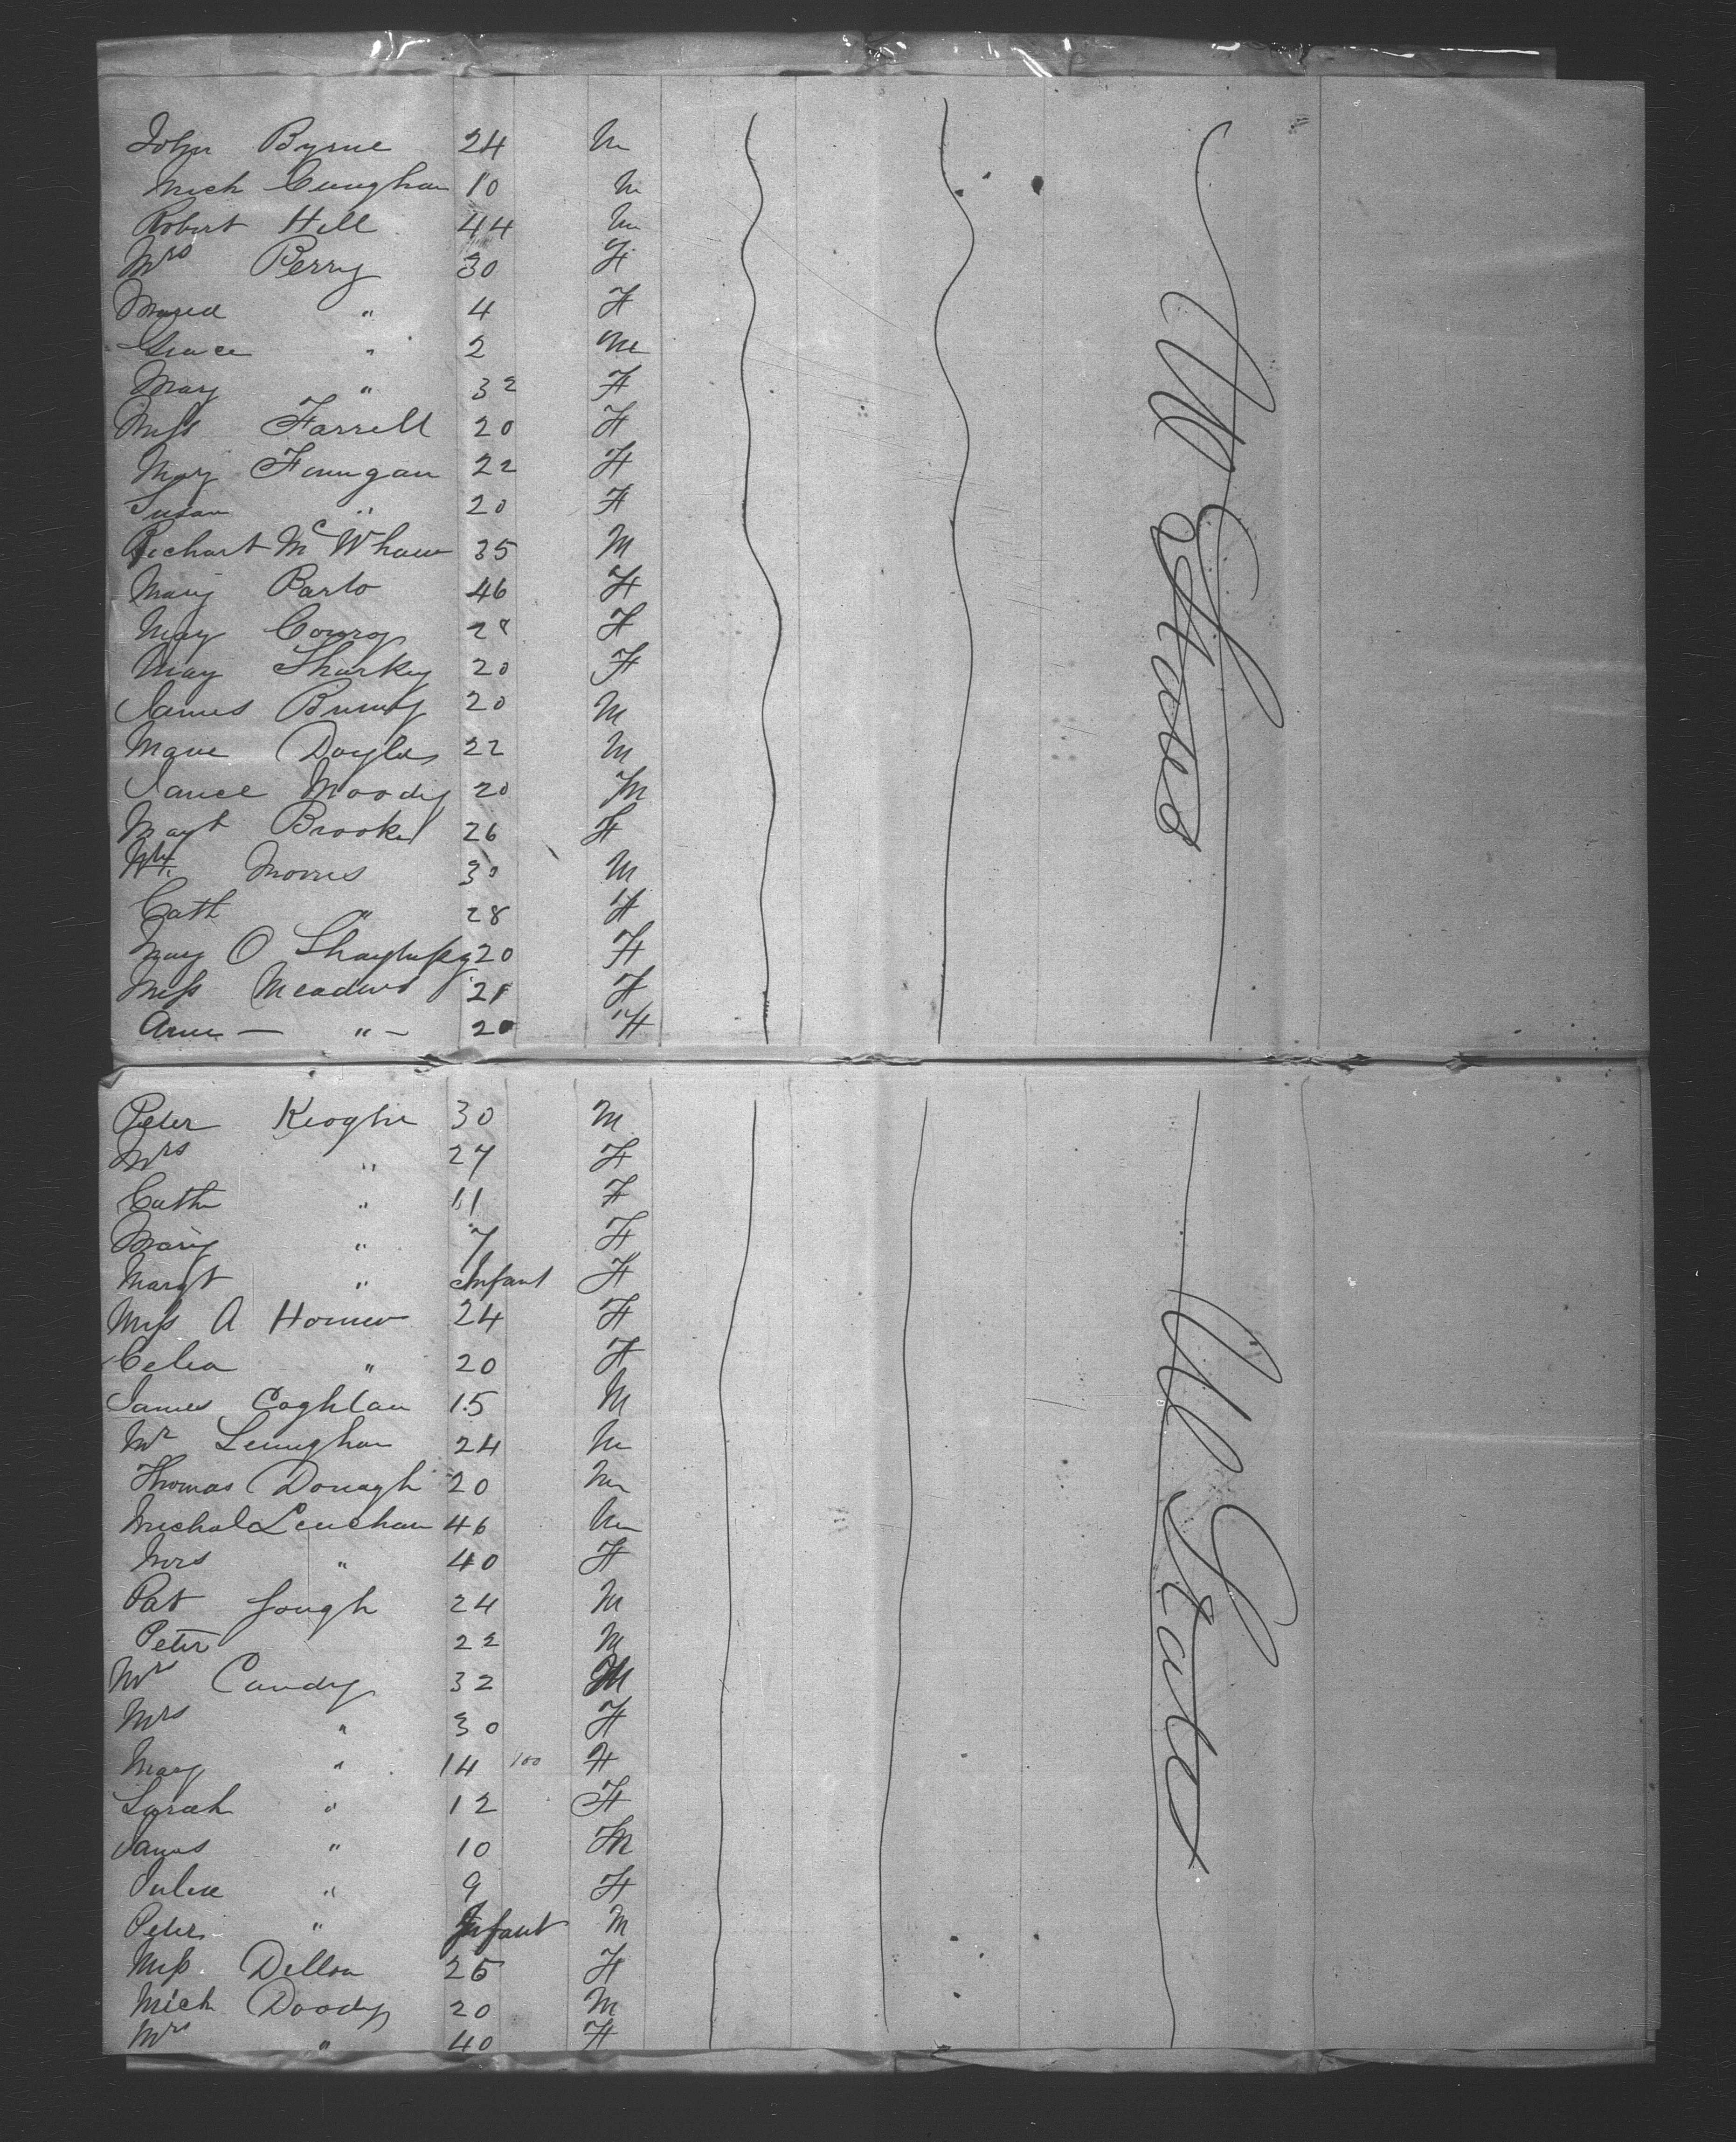 John Byrne 24 M
Mich Cunnghan 10 M
Robert Hill 44 M
Mrs Berry 30 F
Maria " 4 F
Grace " 2 M
Mary " 32 F
Miss Farrell 20 F
Mary Finnigan 22 F
Susan " 20 F
Richart Mc Whaw 35 M
Mary Barlo 46 F
May Conroy 28 F
May Sharkey 20 F
James 20 M
Doyle 22 M
Moody 20 M
Mayt Brooke 26 F
Morris 30 M
Cath " 28 F
May O 20 F
Miss Meadows 21 F
Ann — " — 20 F
U States
Peter Keoghe 30 M
Mrs " 27 F
Cath " 11 F
Mary " 7 F
Margt " Infant F
Miss A 24 F
Celia " 20 F
James Coghlan 15 M
Mr Lennghan 24 M
Thomas Donagh 20 M
Michal Lenehan 46 M
Mrs " 40 F
Pat Gough 24 M
Peter 22 M
Mr Candy 32 M
Mrs " 30 F
Mary " 14 100 F
Sarah " 12 F
James " 10 M
Julia " 9 F
Peter " Infant M
Miss Dillon 25 F
Mich Doody 20 M
Mrs " 40 F
U States